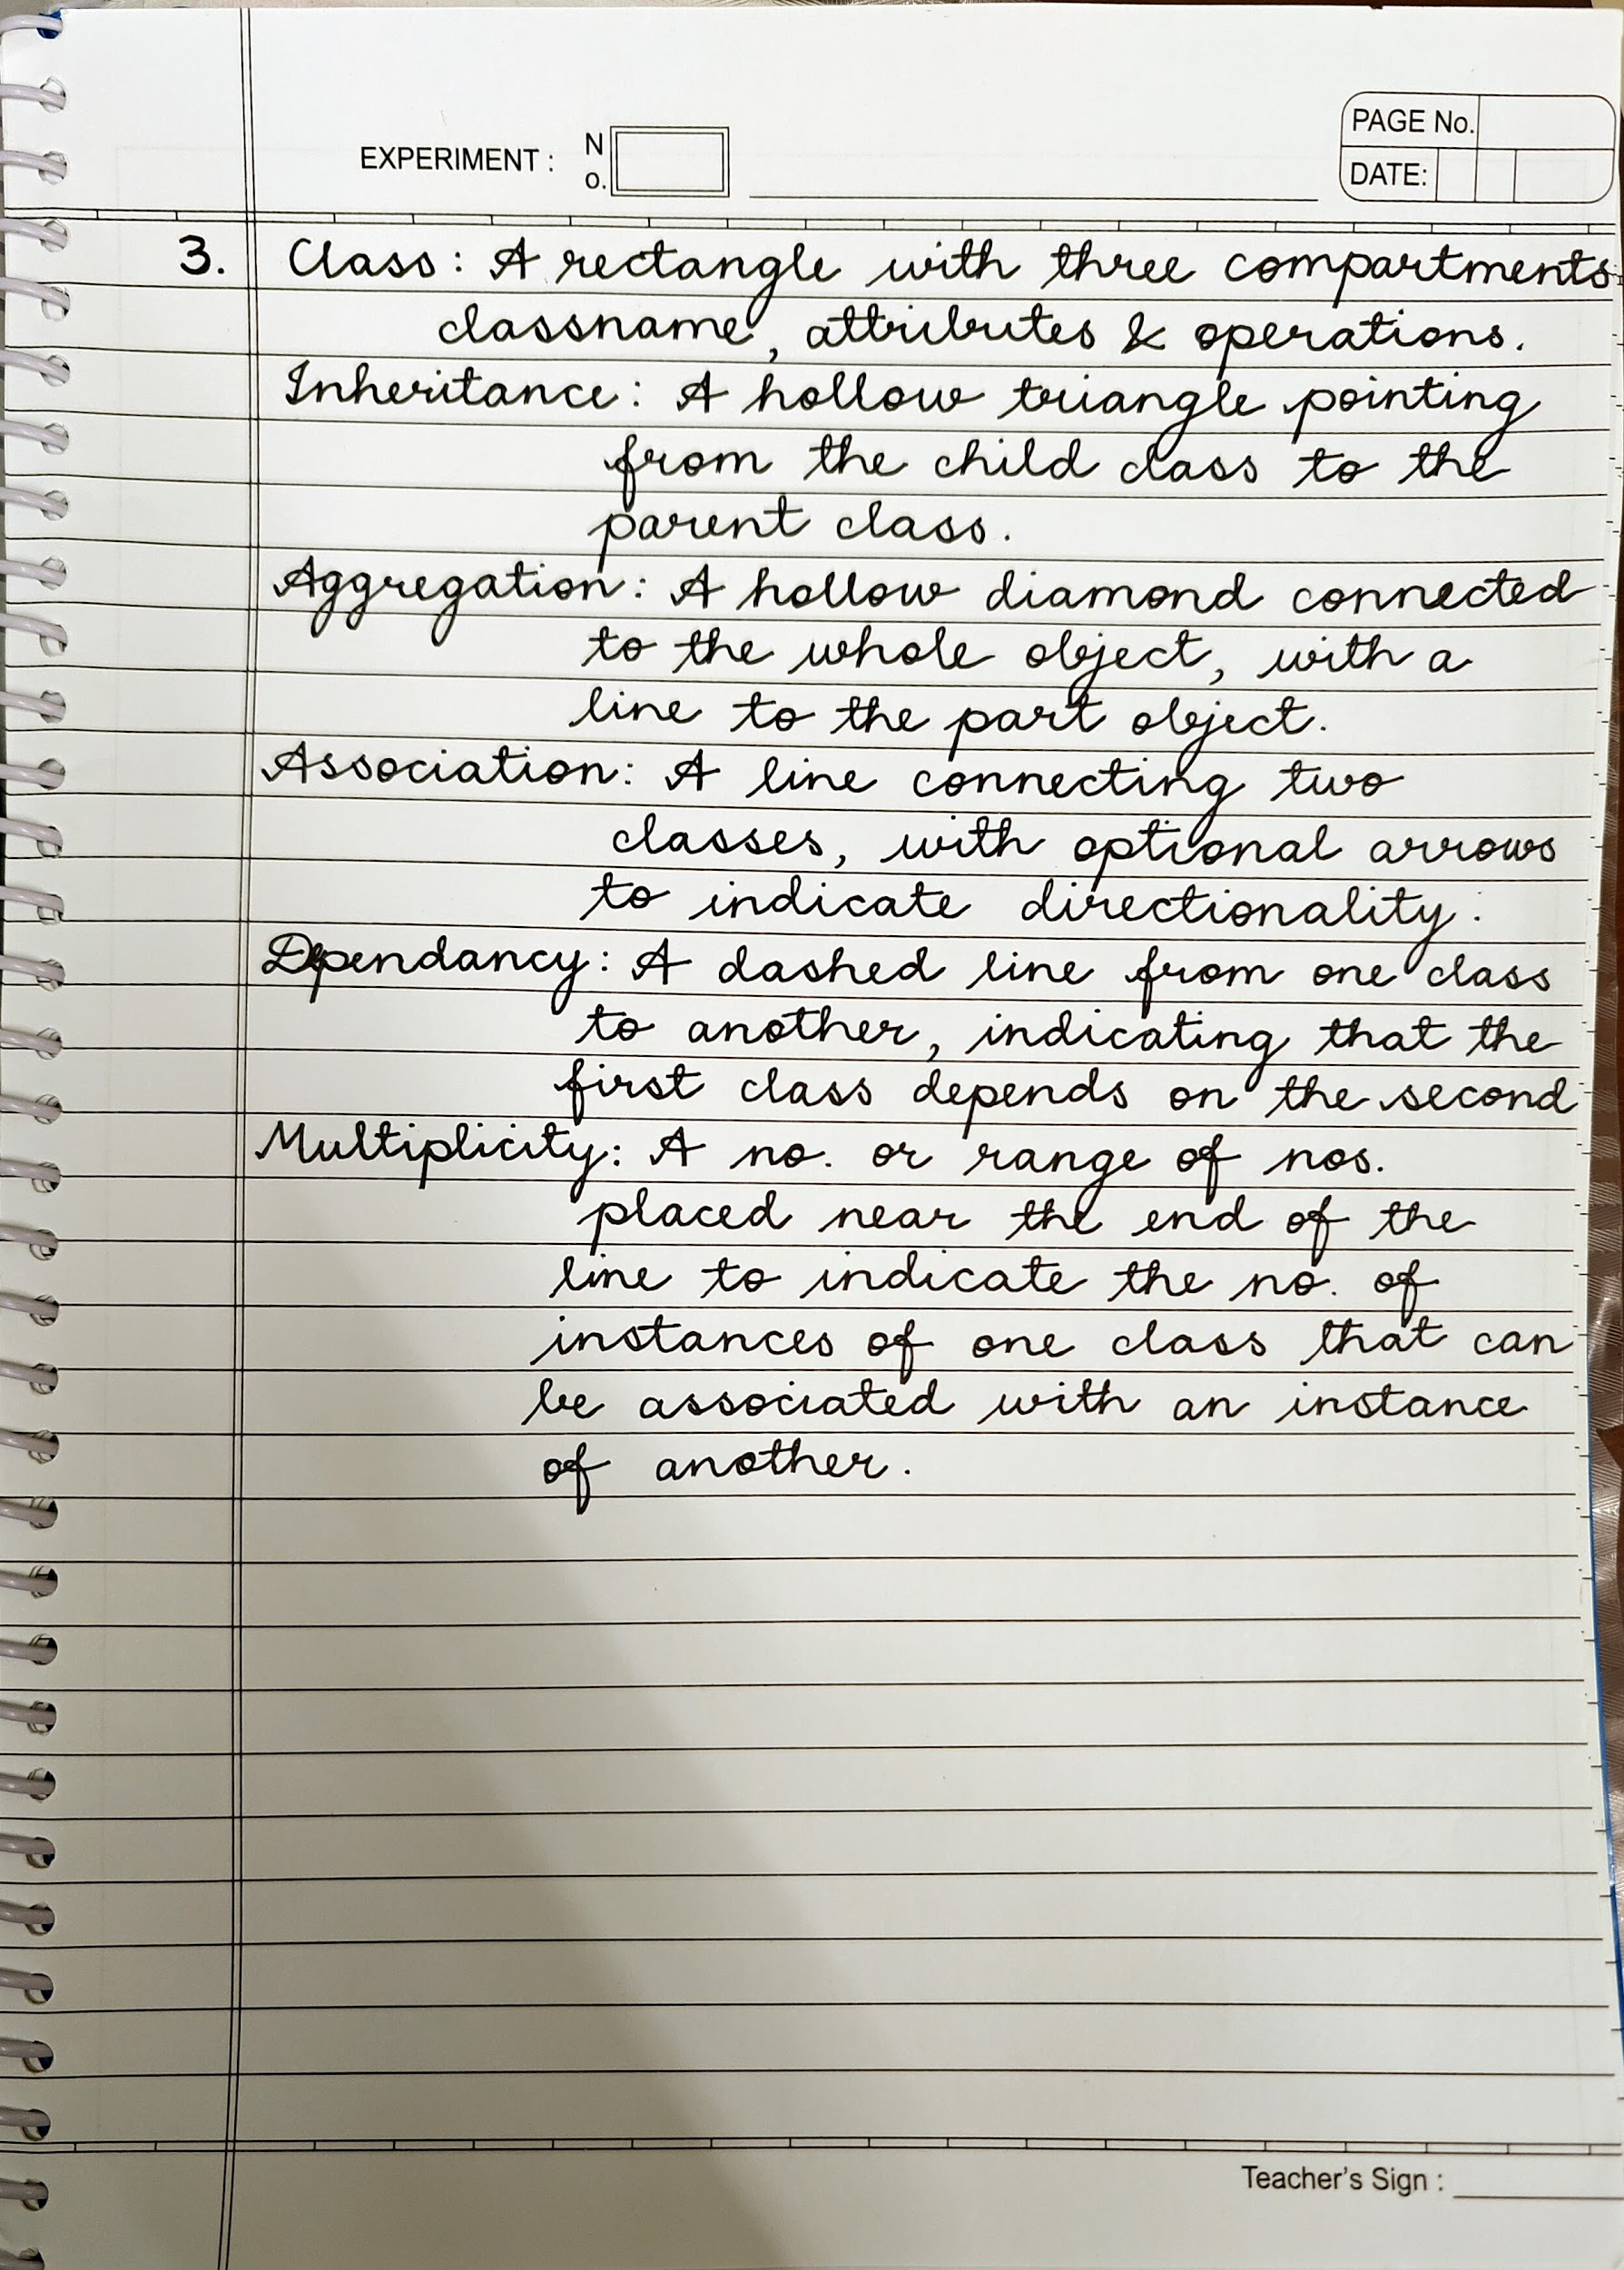 EXPERIMENT : No.
PAGE No.
DATE:
3. Class : A rectangle with three compartments:
classname, attributes & operations.
Inheritance : A hollow triangle pointing
from the child class to the
parent class.
Aggregation : A hollow diamond connected
to the whole object, with a
line to the part object.
Association : A line connecting two
classes, with optional arrows
to indicate directionality.
Dependancy : A dashed line from one class
to another, indicating that the
first class depends on the second
Multiplicity : A no. or range of nos.
placed near the end of the
line to indicate the no. of
instances of one class that can
be associated with an instance
of another.
Teacher's Sign :